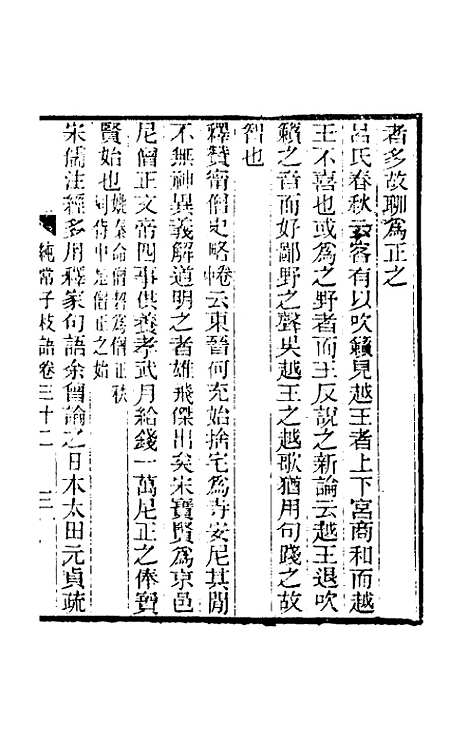 者多故聊爲正之
呂氏春秋云客有以吹籟見越王者上下宮商和而越
王不喜也或爲之野音而王反說之新論云越王退吹
籟之音而好鄙野之聲吳越王之越歌猶用句踐之故
智也
釋贊甯僧史略中卷云東晉何充始捨宅爲寺安尼其閒
不無神異義解道明之者雄飛傑出矣宋寶賢爲京邑
尼僧正文帝四事供養孝武月給錢一萬尼正之俸寶
賢始也姚秦命僧䂮爲僧正秩
同侍中是僧正之始
宋儒注經多用釋家句語余曾論之日本太田元貞疏
純常子枝語卷三十二
三